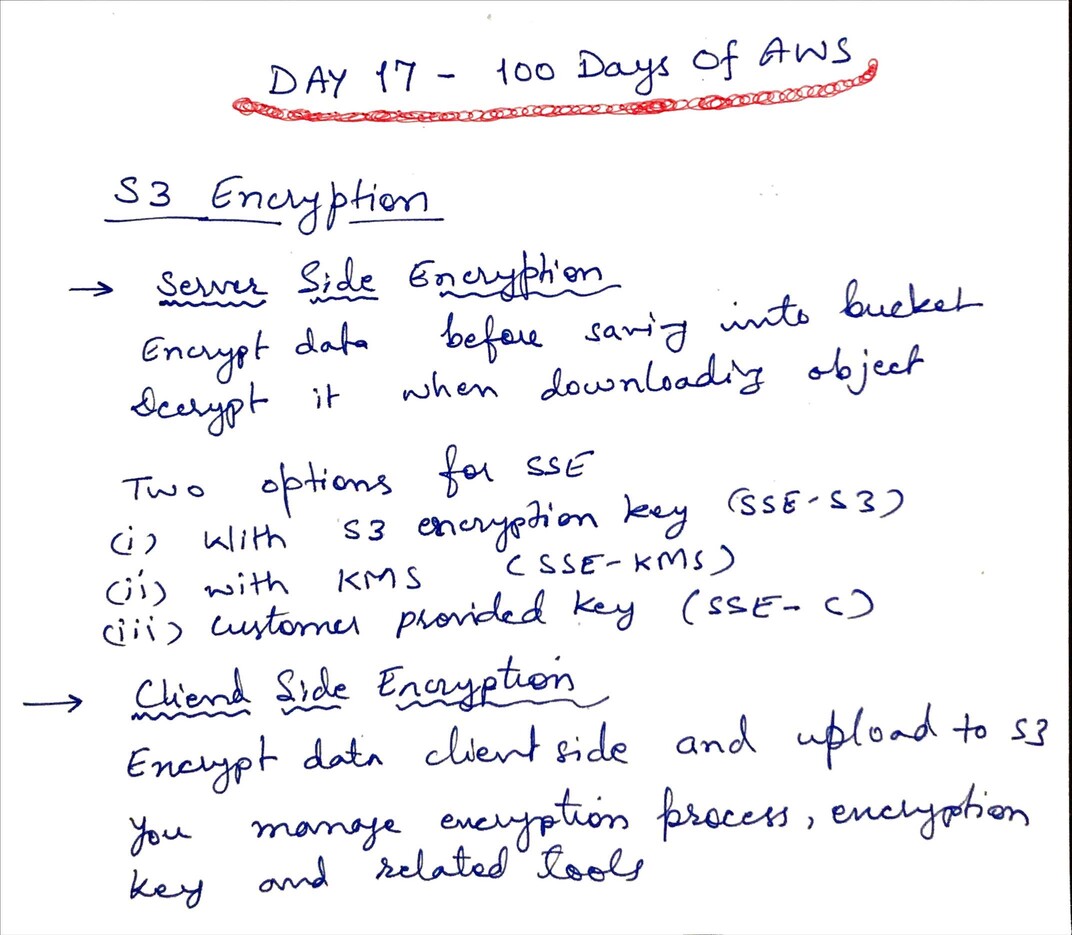 DAY 17 - 100 Days Of AWS
S3 Encryption
→ Server Side Encryption
Encrypt data before saving into bucket
Decrypt it when downloading object
Two options for SSE
(i) With S3 encryption key (SSE-S3)
(ii) with KMS (SSE-KMS)
(iii) customer provided key (SSE-C)
→ Cliend Side Encryption
Encrypt data client side and upload to S3
You manage encryption process, encryption
key and related tools